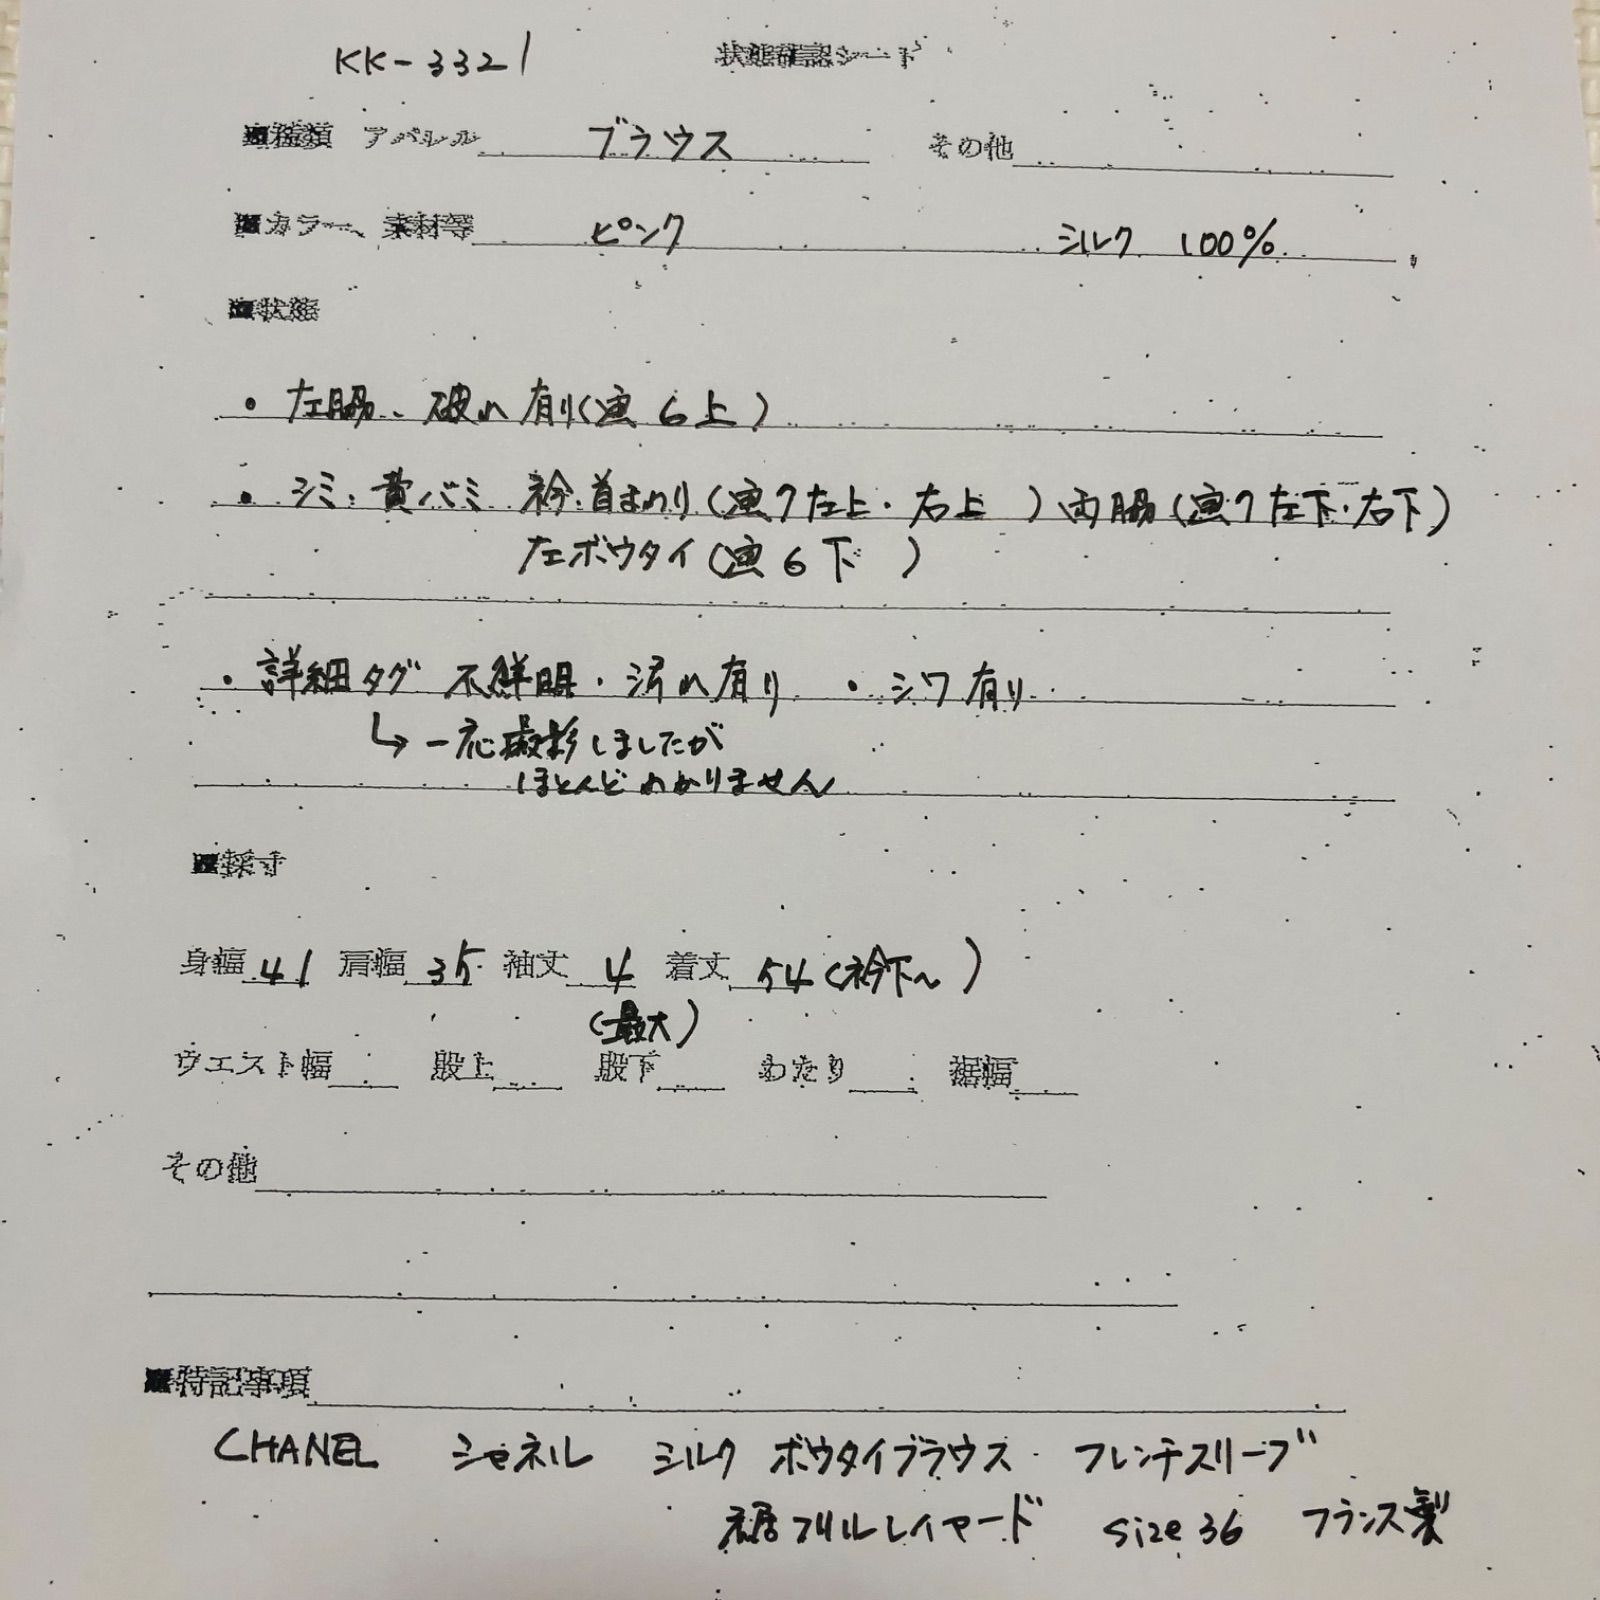 KK-3321 状態確認シート
■種類 アパレル ブラウス その他
■カラー、素材等 ピンク シルク 100%
■状態
・左脇、破れ有り(画6上)
・シミ:黄バミ 衿・首まわり(画7左上・右上 ) 両脇(画7左下・右下)
左ボウタイ(画6下 )
・詳細タグ 不鮮明・汚れ有り ・シワ有り
↳一応撮影しましたが
ほとんどわかりません
■採寸
身幅 41 肩幅 35 袖丈 4 着丈 54(衿下〜 )
(最大)
ウエスト幅 股上 股下 わたり 裾幅
その他
■特記事項
CHANEL シャネル シルク ボウタイブラウス フレンチスリーブ
裾フリルレイヤード size 36 フランス製